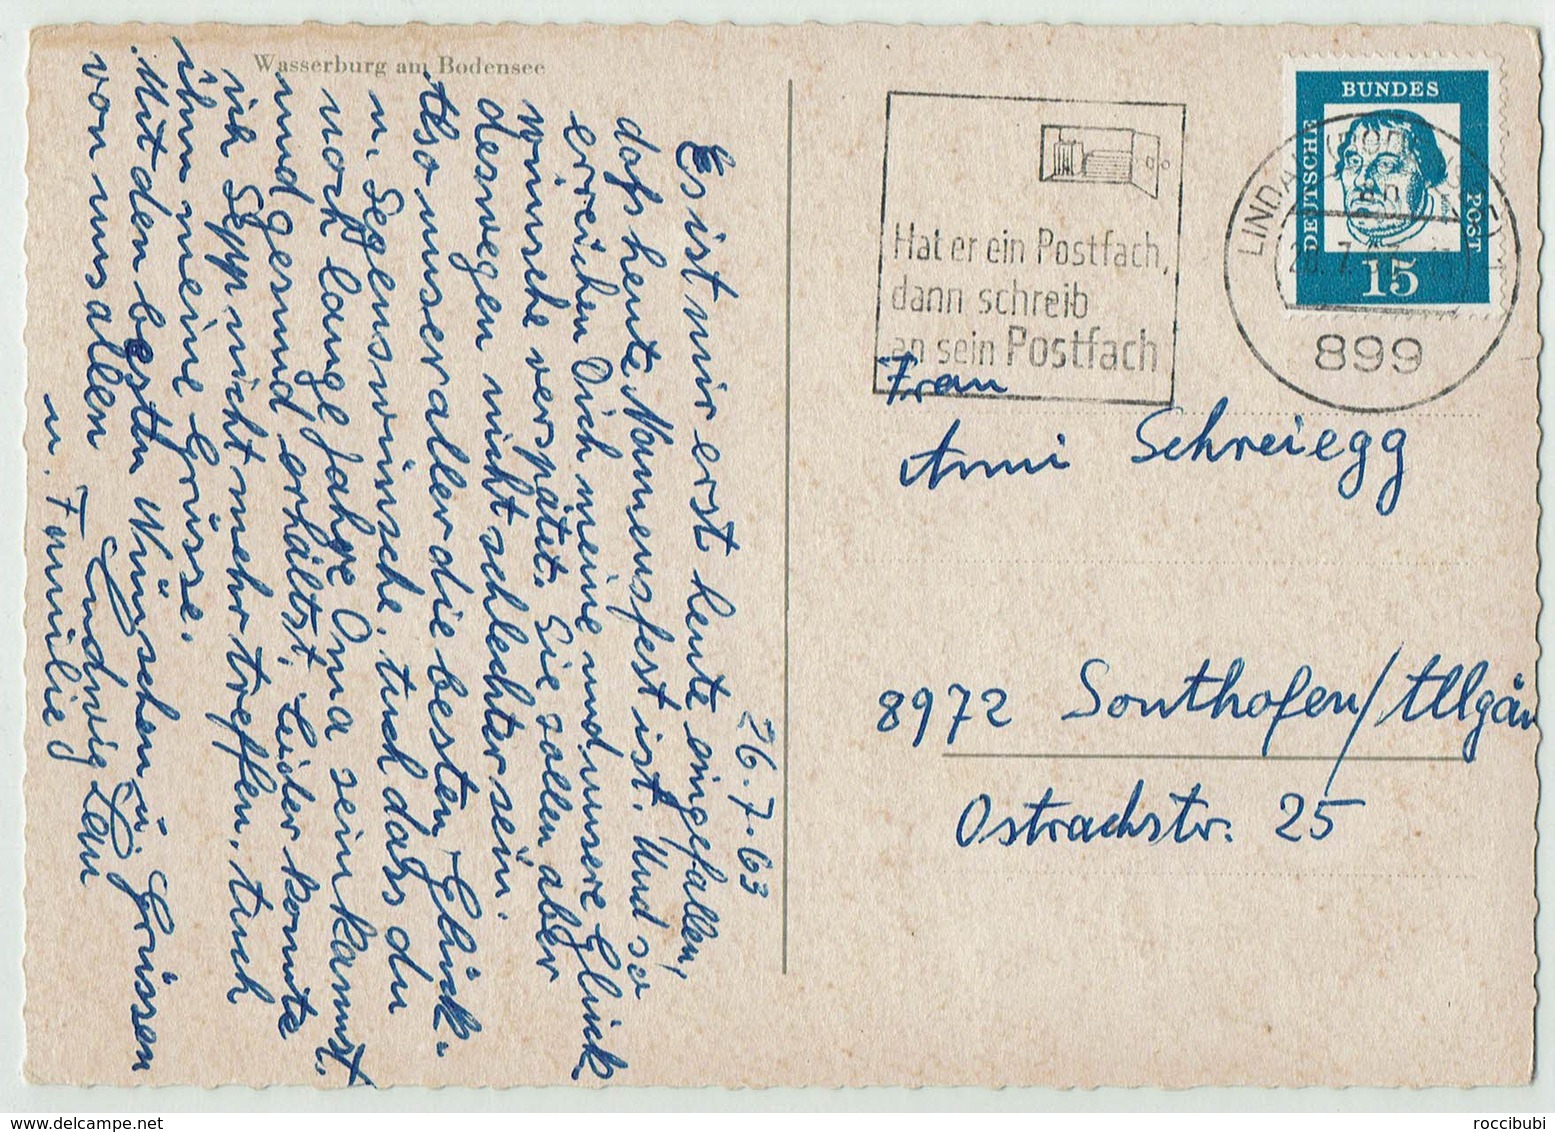 Wasserburg am Bodensee
26.7.63
Es ist mir erst heute eingefallen,
dass heute Namensfest ist. Und so
erreichen Dich meine und unsere Glück
wünsche verspätet. Sie sollen aber
deswegen nicht schlechter sein.
Also unser aller die besten Glück-
u. Segenswünsche. Auch dass du
noch lange Jahre Oma sein kannst.
und gesund erhältst. Leider konnte
ich Sepp nicht mehr treffen. Auch
ihm meine Grüsse.
Mit den besten Wünschen u. Grüssen
von uns allen Ludwig
u. Familie
Hat er ein Postfach,
dann schreib
an sein Postfach
BUNDES
DEUTSCHE
POST
15
LINDAU (BODENSEE)
899
Frau
Anni Schreiegg
8972 Sonthofen/Allgäu
Ostrachstr. 25
roccibubi